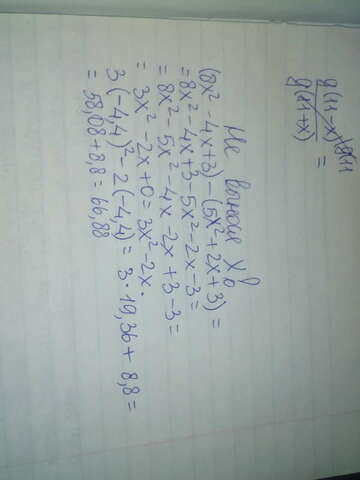 g(11-x)
g(11+x) =
Не
(8x² - 4x+3) - (5x²+2x+3) =
= 8x² - 4x+3-5x²-2x-3 =
= 8x² - 5x² - 4x - 2x + 3 - 3 =
= 3x² - 2x + 0 = 3x² - 2x.
3(-4,4)² - 2(-4,4) = 3 · 19,36 + 8,8 =
= 58,08 + 8,8 = 66,88